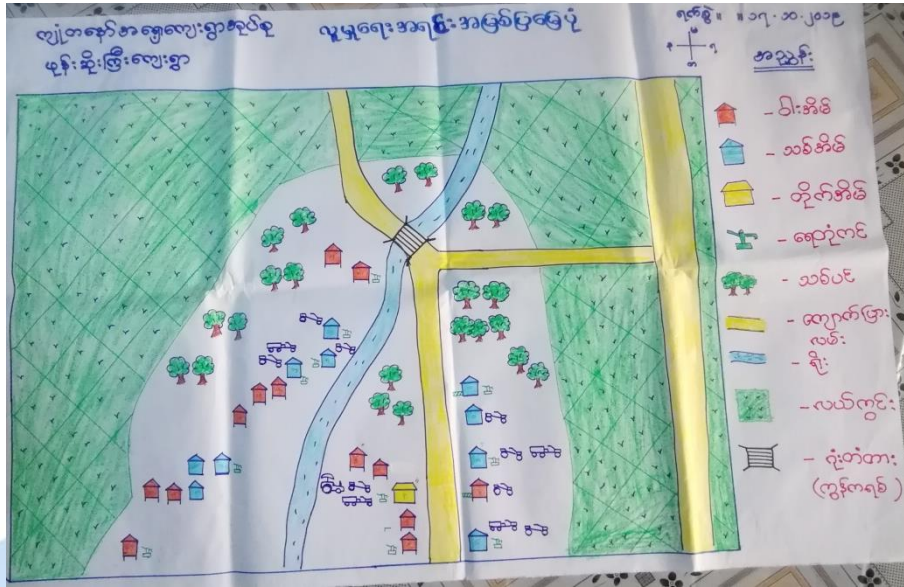 ကျုံကနော်အနောက်ကျေးရွာအုပ်စု
ဖုန်းဆိုးကြီးကျေးရွာ
လူမှုရေးအရင်းအမြစ်ပြမြေပုံ
ရက်စွဲ ။ ။ ၁၇-၁၀-၂၀၁၉
အညွှန်း
- ဝါးအိမ်
- သစ်အိမ်
- တိုက်အိမ်
- ရေတုံကင်
- သစ်ပင်
- ကျောက်ပြားလမ်း
- ရိုး
- လယ်ကွင်း
- ရုံးတံတား
(ကွန်ကရစ်)